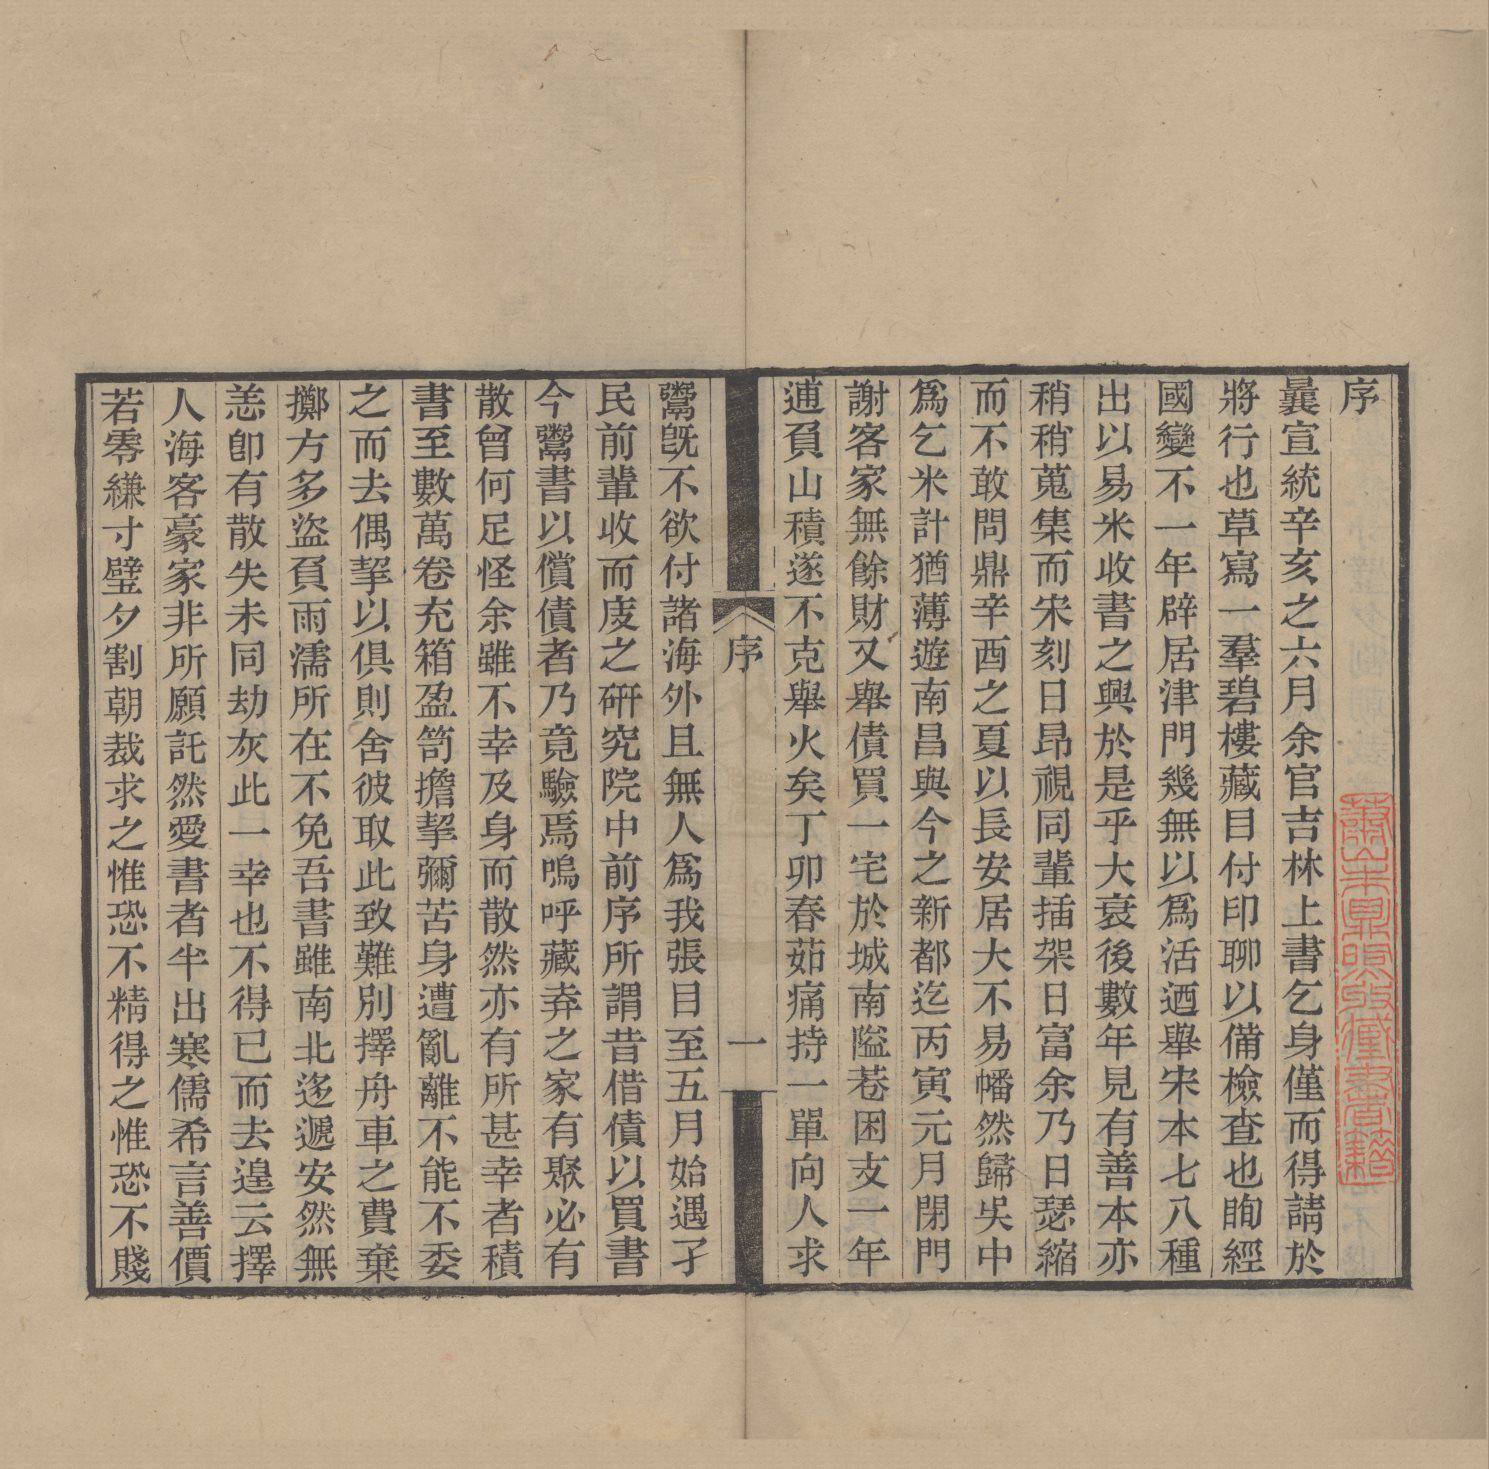 序
曩宣統辛亥之六月余官吉林上書乞身僅而得請於
將行也草寫一羣碧樓藏目付印聊以備檢查也眴經
國變不一年辟居津門幾無以爲活迺舉宋本七八種
出以易米收書之興於是乎大衰後數年見有善本亦
稍稍蒐集而宋刻日昂視同輩插架日富余乃日瑟縮
而不敢問鼎辛酉之夏以長安居大不易幡然歸吳中
爲乞米計猶薄遊南昌與今之新都迄丙寅元月閉門
謝客家無餘財又舉債買一宅於城南隘巷困支一年
逋負山積遂不克舉火矣丁卯春茹痛持一單向人求
序
一
鬻旣不欲付諸海外且無人爲我張目至五月始遇孑
民前輩收而庋之研究院中前序所謂昔借債以買書
今鬻書以償債者乃竟驗焉嗚呼藏弆之家有聚必有
散曾何足怪余雖不幸及身而散然亦有所甚幸者積
書至數萬卷充箱盈笥擔挈彌苦身遭亂離不能不委
之而去偶挈以俱則舍彼取此致難別擇舟車之費棄
擲方多盜負雨濡所在不免吾書雖南北迻遞安然無
恙卽有散失未同劫灰此一幸也不得已而去遑云擇
人海客豪家非所願託然愛書者半出寒儒希言善價
若零縑寸璧夕割朝裁求之惟恐不精得之惟恐不賤